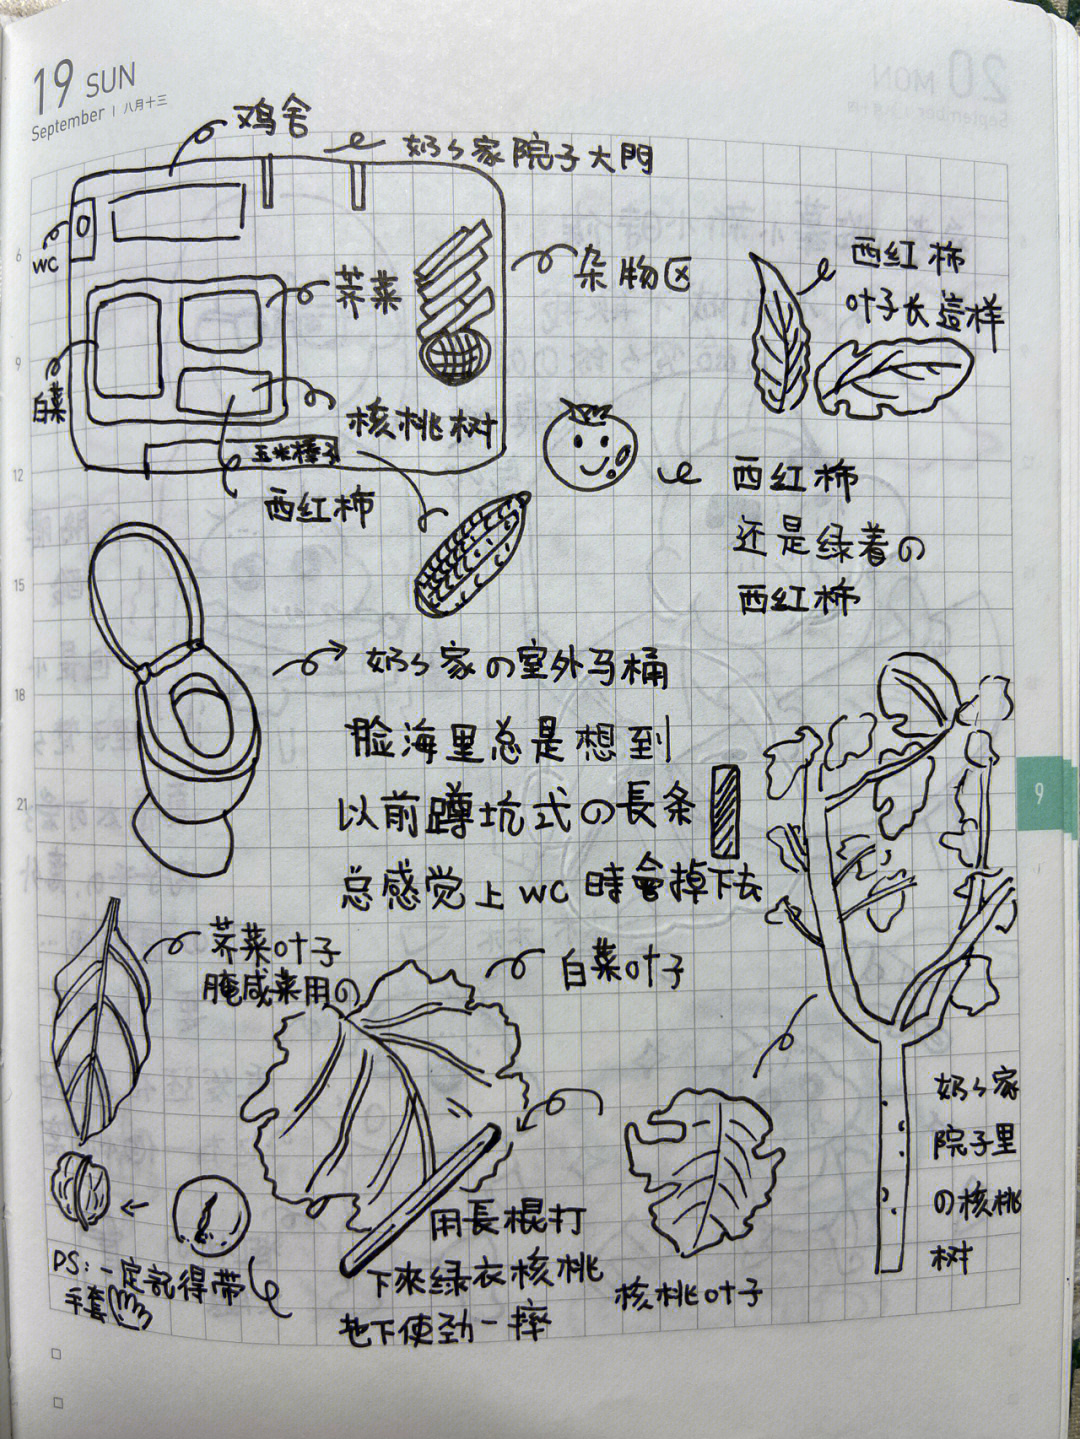 19 SUN
September | 八月十三
鸡舍
奶々家院子大門
WC
荠菜
杂物区
白菜
核桃树
玉米棒子
西红柿
西红柿
叶子长這样
西红柿
还是绿着の
西红柿
奶々家の室外马桶
脸海里总是想到
以前蹲坑式の長条
总感觉上WC時會掉下去
荠菜叶子
腌咸菜用の
白菜叶子
奶々家
院子里
の核桃
树
用長棍打
下來绿衣核桃
地下使劲一摔
核桃叶子
PS:一定記得带
手套
6
9
12
15
18
21
9